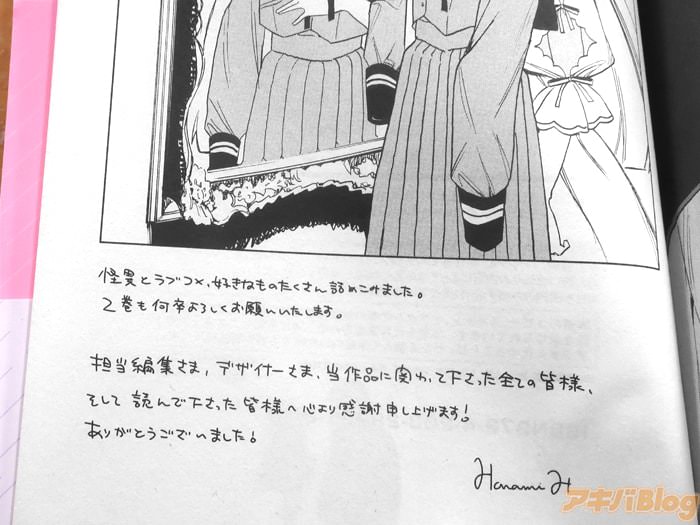 怪異とラブコメ、好きなものたくさん詰めこみました。
2巻も何卒よろしくお願いいたします。
担当編集さま、デザイナーさま、当作品に関わって下さった全ての皆様、
そして読んで下さった皆様へ心より感謝申し上げます!
ありがとうございました!
Hanami H
アキバBlog